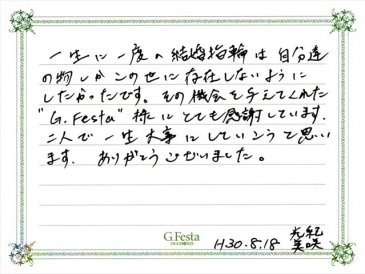 一生に一度の結婚指輪は自分達
の物しかこの世に存在しないように
したかったです。その機会を与えてくれた
"G.Festa"様にとても感謝しています。
二人で一生大事にしていこうと思い
ます。ありがとうございました。
G.Festa
DIAMOND
H30.8.18
美咲